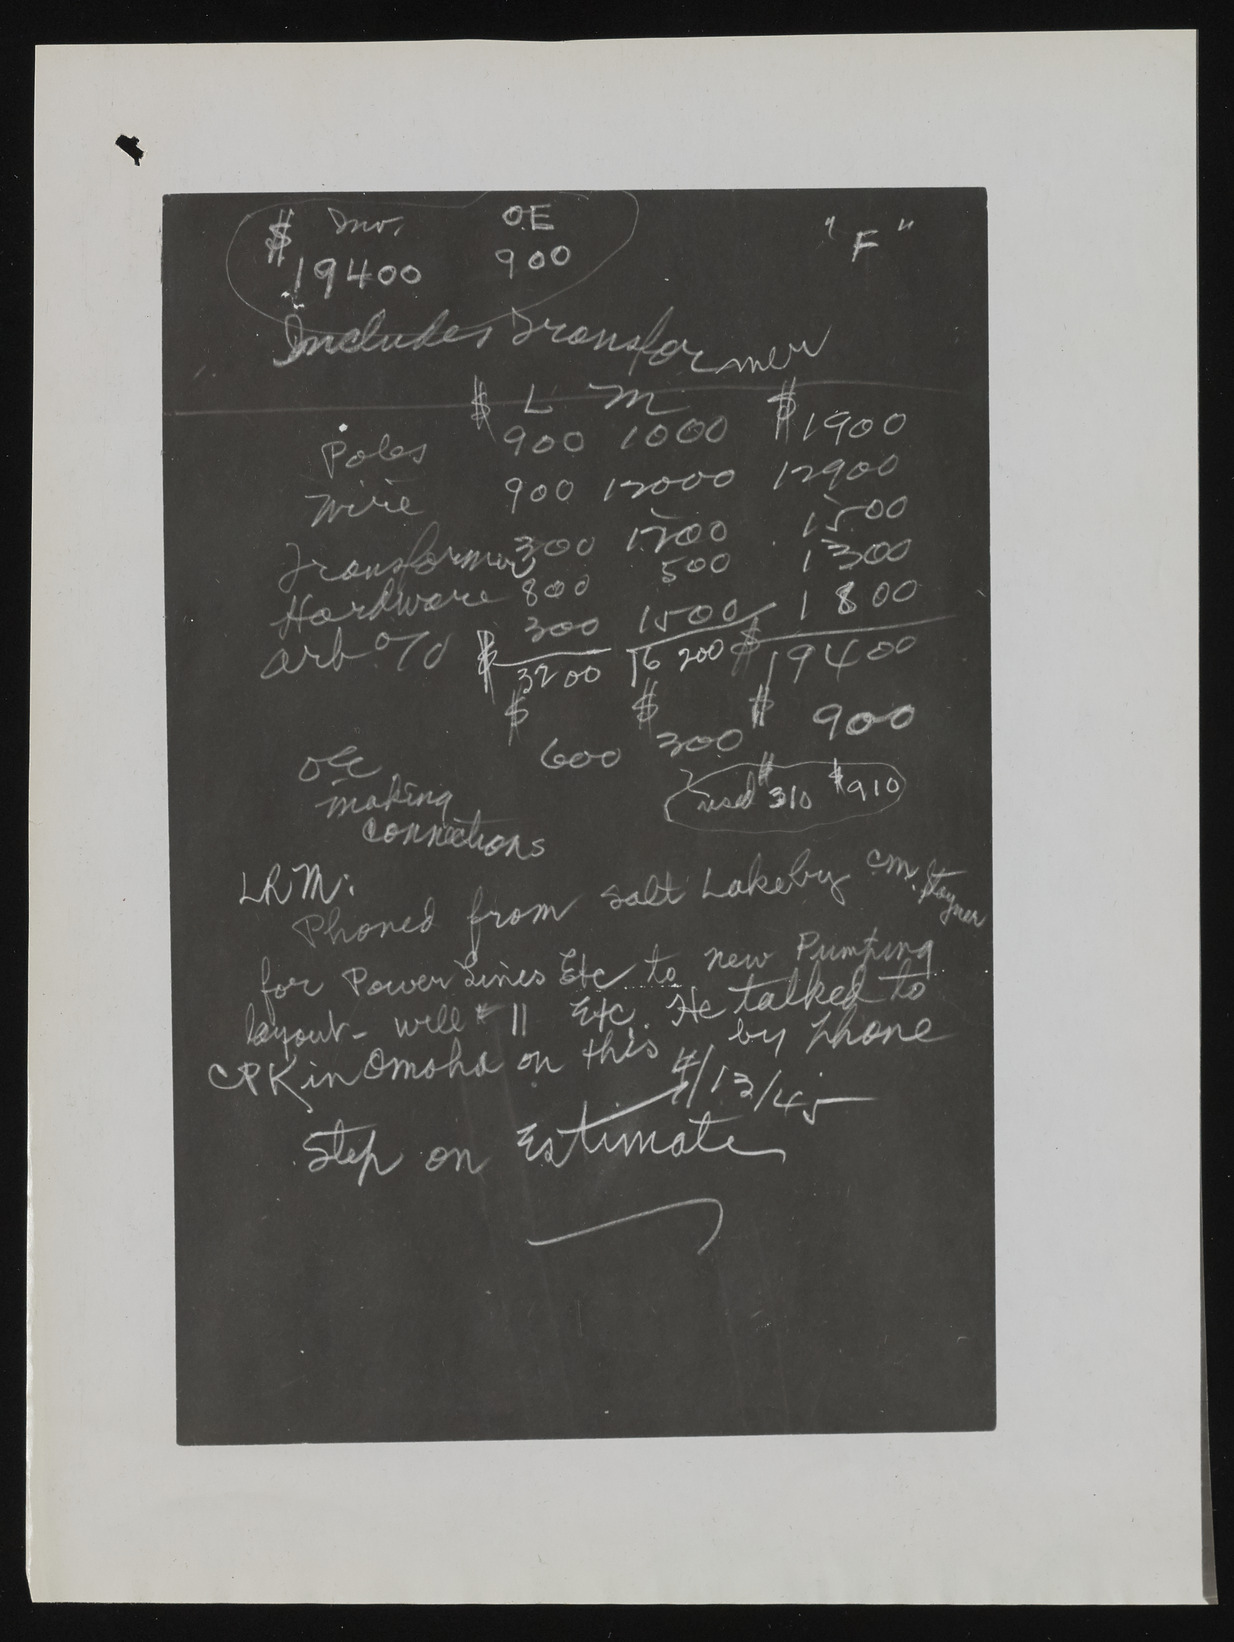 $ Inv. OE "F"
19400 900
Includes Transformer
$ L M $
Poles 900 1000 1900
Wire 900 12000 12900
Transformer 300 1200 1500
Hardware 800 500 1300
arb % 300 1500 1800
$ 3200 16200 $ 19400
$ $ $
600 300 900
OE
making
connections
used $310 $910
LRM:
Phoned from Salt Lake by CM. Stayner
for Power Lines Etc to new Pumping
layout - well #11 Etc. He talked to
CPK in Omaha on this by phone
4/13/45
Step on Estimate